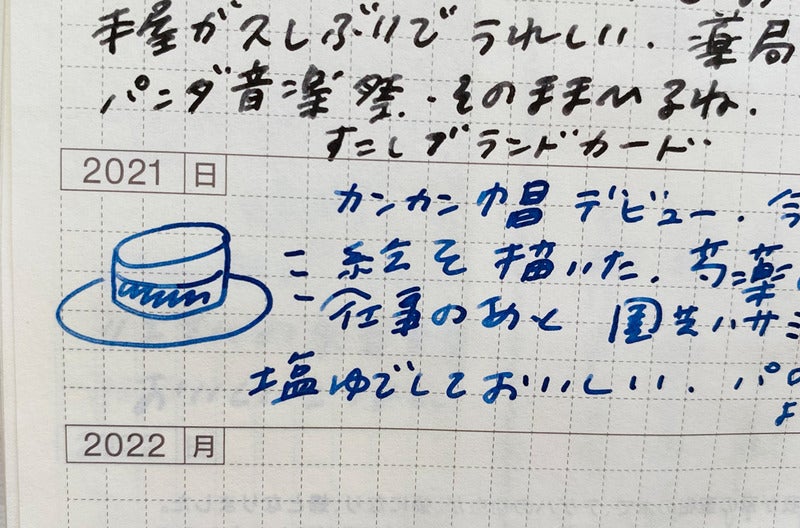 屋がスしぶりでうれしい. 薬局
パンダ音楽祭. そのままいるね.
すこしグランドカード..
2021 日
カンカン帽デビュー. 今
絵を描いた. 芍薬
仕事のあと
塩ゆでしておいしい. パ
よ
2022 月